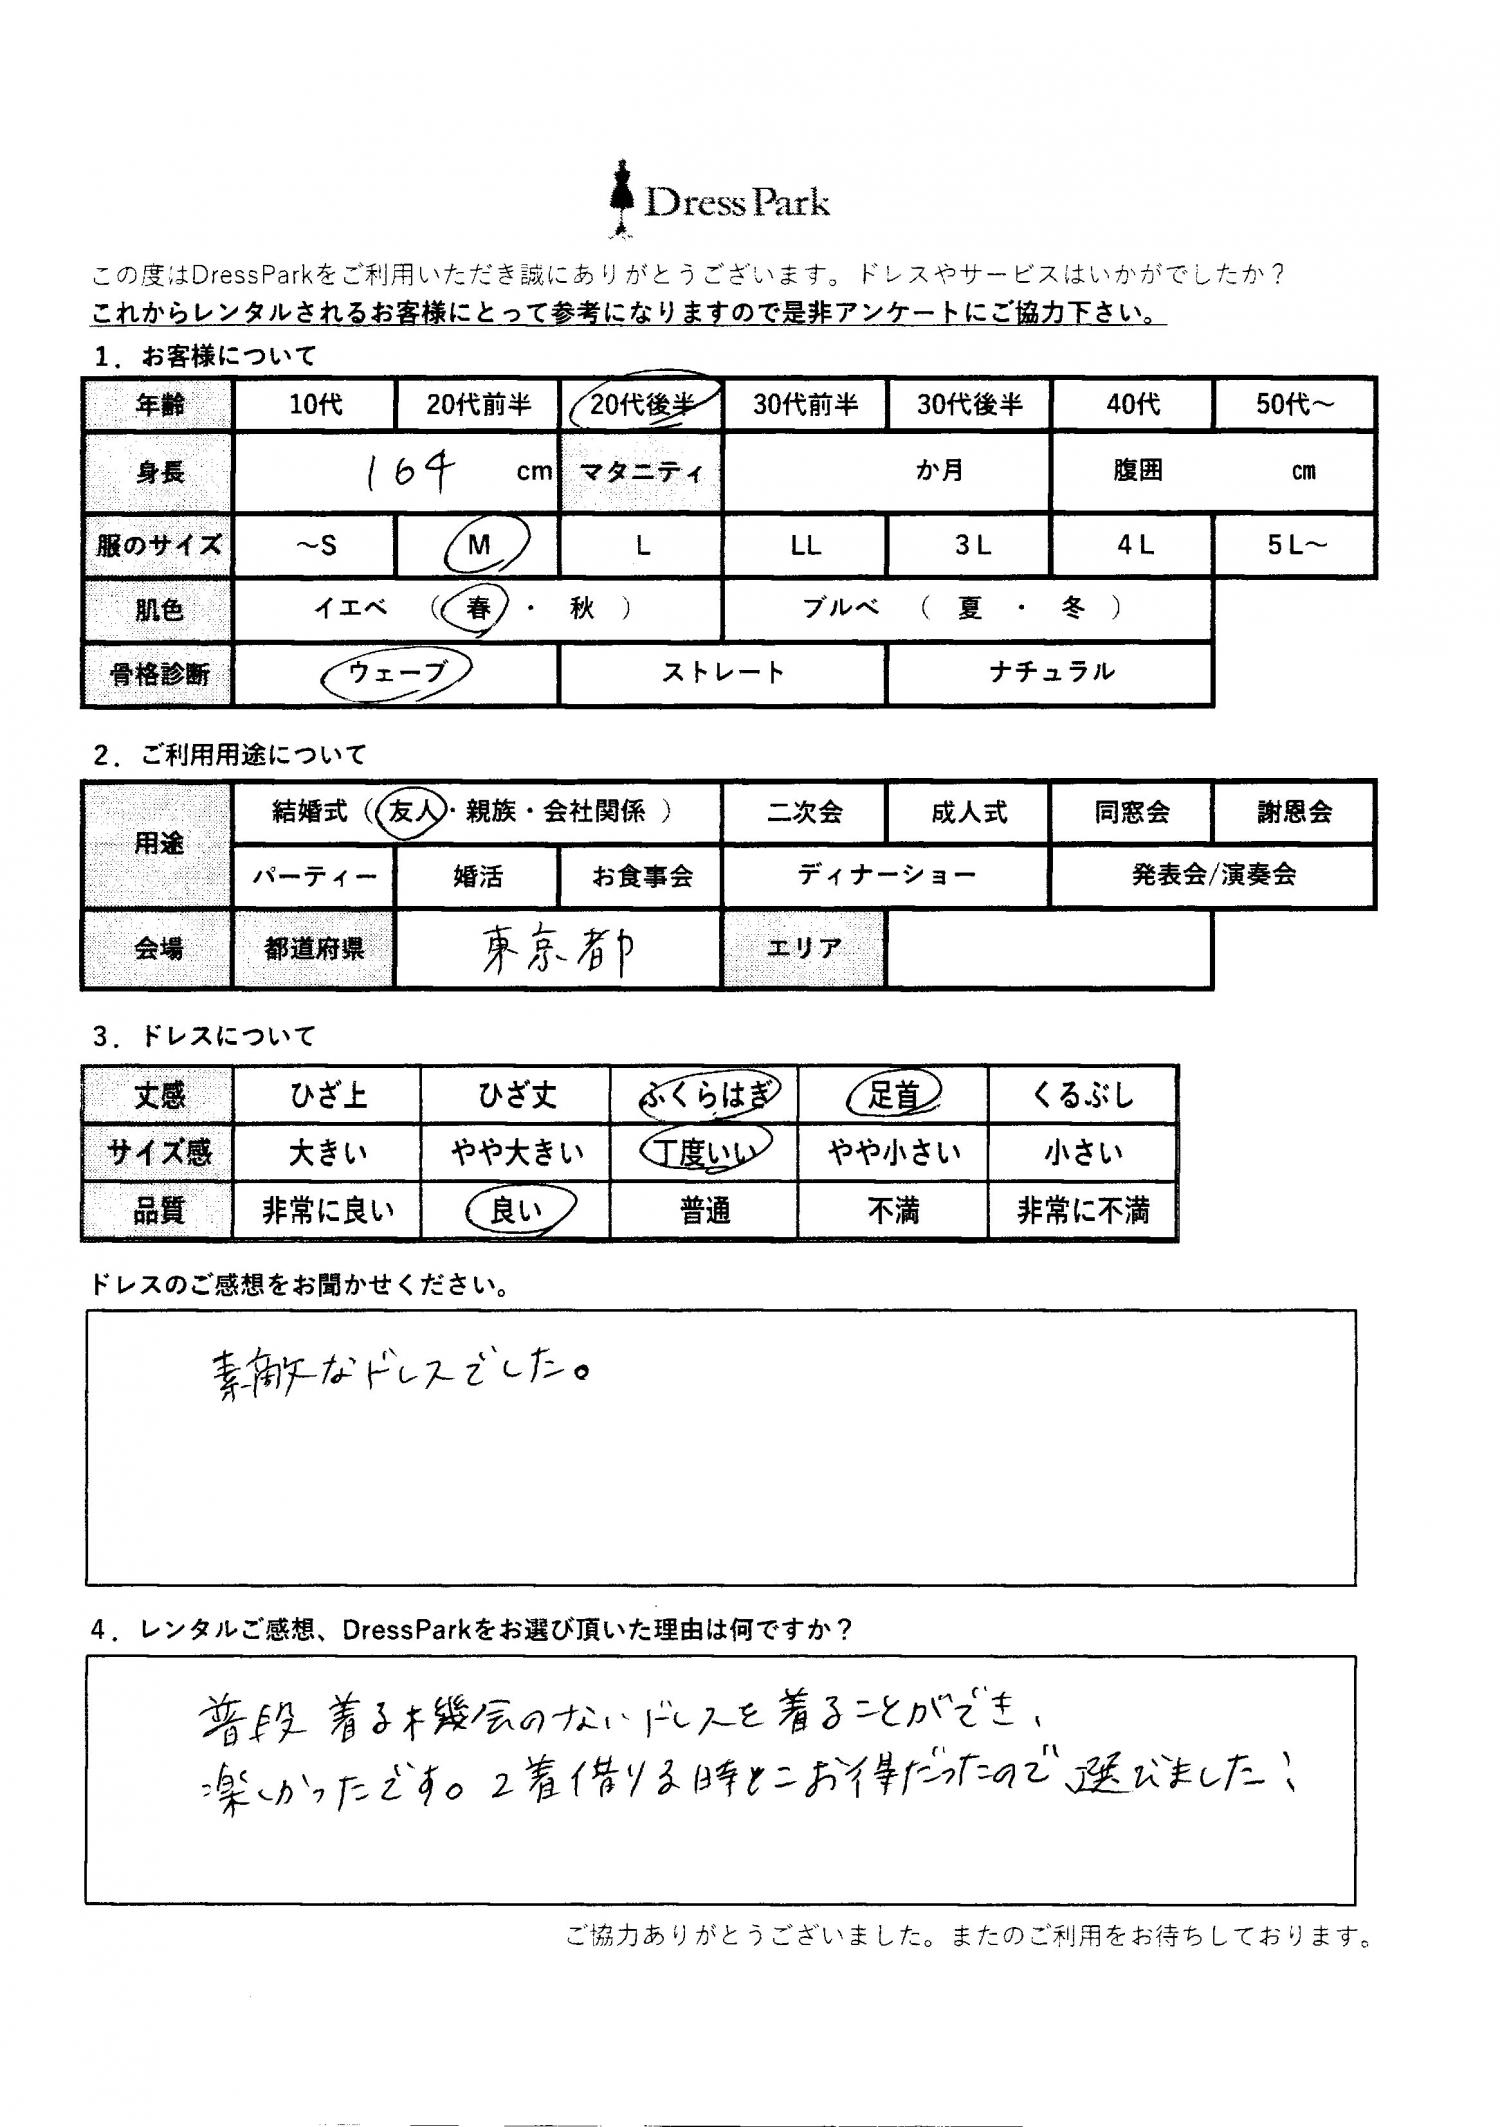 Dress Park
この度はDressParkをご利用いただき誠にありがとうございます。ドレスやサービスはいかがでしたか？
これからレンタルされるお客様にとって参考になりますので是非アンケートにご協力下さい。
1．お客様について
年齢 10代 20代前半 20代後半 30代前半 30代後半 40代 50代～
身長 164 cm マタニティ か月 腹囲 cm
服のサイズ ～S M L LL 3L 4L 5L～
肌色 イエベ （ 春 ・ 秋 ） ブルベ （ 夏 ・ 冬 ）
骨格診断 ウェーブ ストレート ナチュラル
2．ご利用用途について
用途 結婚式（ 友人・親族・会社関係 ） 二次会 成人式 同窓会 謝恩会
パーティー 婚活 お食事会 ディナーショー 発表会/演奏会
会場 都道府県 東京都 エリア
3．ドレスについて
丈感 ひざ上 ひざ丈 ふくらはぎ 足首 くるぶし
サイズ感 大きい やや大きい 丁度いい やや小さい 小さい
品質 非常に良い 良い 普通 不満 非常に不満
ドレスのご感想をお聞かせください。
素敵なドレスでした。
4．レンタルご感想、DressParkをお選び頂いた理由は何ですか？
普段 着る機会のないドレスを着ることができ、
楽しかったです。2着借りる時とこお得だったので選びました！
ご協力ありがとうございました。またのご利用をお待ちしております。